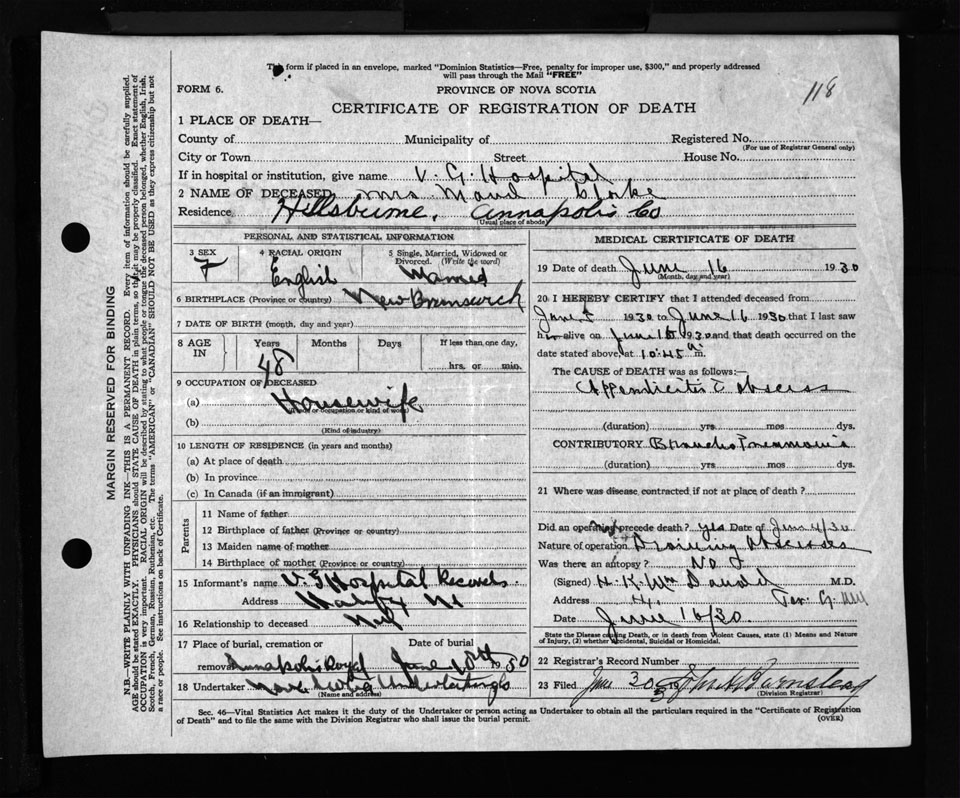 This form if placed in an envelope, marked "Dominion Statistics—Free, penalty for improper use, $300," and properly addressed
will pass through the Mail "FREE"
118
FORM 6.
PROVINCE OF NOVA SCOTIA
CERTIFICATE OF REGISTRATION OF DEATH
1 PLACE OF DEATH—
County of Municipality of Registered No.
(For use of Registrar General only)
City or Town Street House No.
If in hospital or institution, give name V. G. Hospital
2 NAME OF DECEASED Mrs. Maud
Residence Hillsburne, Annapolis Co
(Usual place of abode)
PERSONAL AND STATISTICAL INFORMATION
3 SEX 4 RACIAL ORIGIN 5 Single, Married, Widowed or
Divorced. (Write the word)
F English Married
6 BIRTHPLACE (Province or country) New Brunswick
7 DATE OF BIRTH (month, day and year)
8 AGE IN Years Months Days If less than one day,
48 hrs. or min.
9 OCCUPATION OF DECEASED
(a) Housewife
(Trade or occupation or kind of work)
(b)
(Kind of industry)
10 LENGTH OF RESIDENCE (in years and months)
(a) At place of death
(b) In province
(c) In Canada (if an immigrant)
Parents
11 Name of father
12 Birthplace of father (Province or country)
13 Maiden name of mother
14 Birthplace of mother (Province or country)
15 Informant's name V. G Hospital Records
Address Halifax NS
16 Relationship to deceased
17 Place of burial, cremation Date of burial
removal Annapolis Royal June
18 Undertaker Nova Scotia Undertaking Co
(Name and address)
MEDICAL CERTIFICATE OF DEATH
19 Date of death June 16 1930
(Month, day and year)
20 I HEREBY CERTIFY that I attended deceased from
1930 to June 16 1930 that I last saw
h alive on June 1930 and that death occurred on
date stated above, at 10.45 m.
The CAUSE OF DEATH was as follows:—
Appendicitis c̄ Abscess
(duration) yrs. mos dys.
CONTRIBUTORY Broncho Pneumonia
(duration) yrs mos dys.
21 Where was disease contracted if not at place of death?
Did an operation precede death? yes Date of June /30
Nature of operation Draining Abscess
Was there an autopsy? No
(Signed) H. K. M.D.
Address
Date June 16/30.
State the Disease causing Death, or in death from Violent Causes, state (1) Means and Nature
of Injury, (2) whether Accidental, Suicidal or Homicidal.
22 Registrar's Record Number
23 Filed June 30 John Barnstead
(Division Registrar)
Sec. 46—Vital Statistics Act makes it the duty of the Undertaker or person acting as Undertaker to obtain all the particulars required in the "Certificate of Registration
of Death" and to file the same with the Division Registrar who shall issue the burial permit.
(OVER)
MARGIN RESERVED FOR BINDING
N.B.—WRITE PLAINLY WITH UNFADING INK—THIS IS A PERMANENT RECORD. Every item of information should be carefully supplied.
AGE should be stated EXACTLY. PHYSICIANS should STATE CAUSE OF DEATH in plain terms, so that it may be properly classified. Exact statement of
OCCUPATION is very important. RACIAL ORIGIN will be described by stating to what people or tongue the deceased person belonged, whether English, Irish,
Scotch, French, German, Russian, Ruthenian, etc. The terms "AMERICAN" or "CANADIAN" SHOULD NOT BE USED as they express citizenship but not
a race or people. See instructions on back of Certificate.